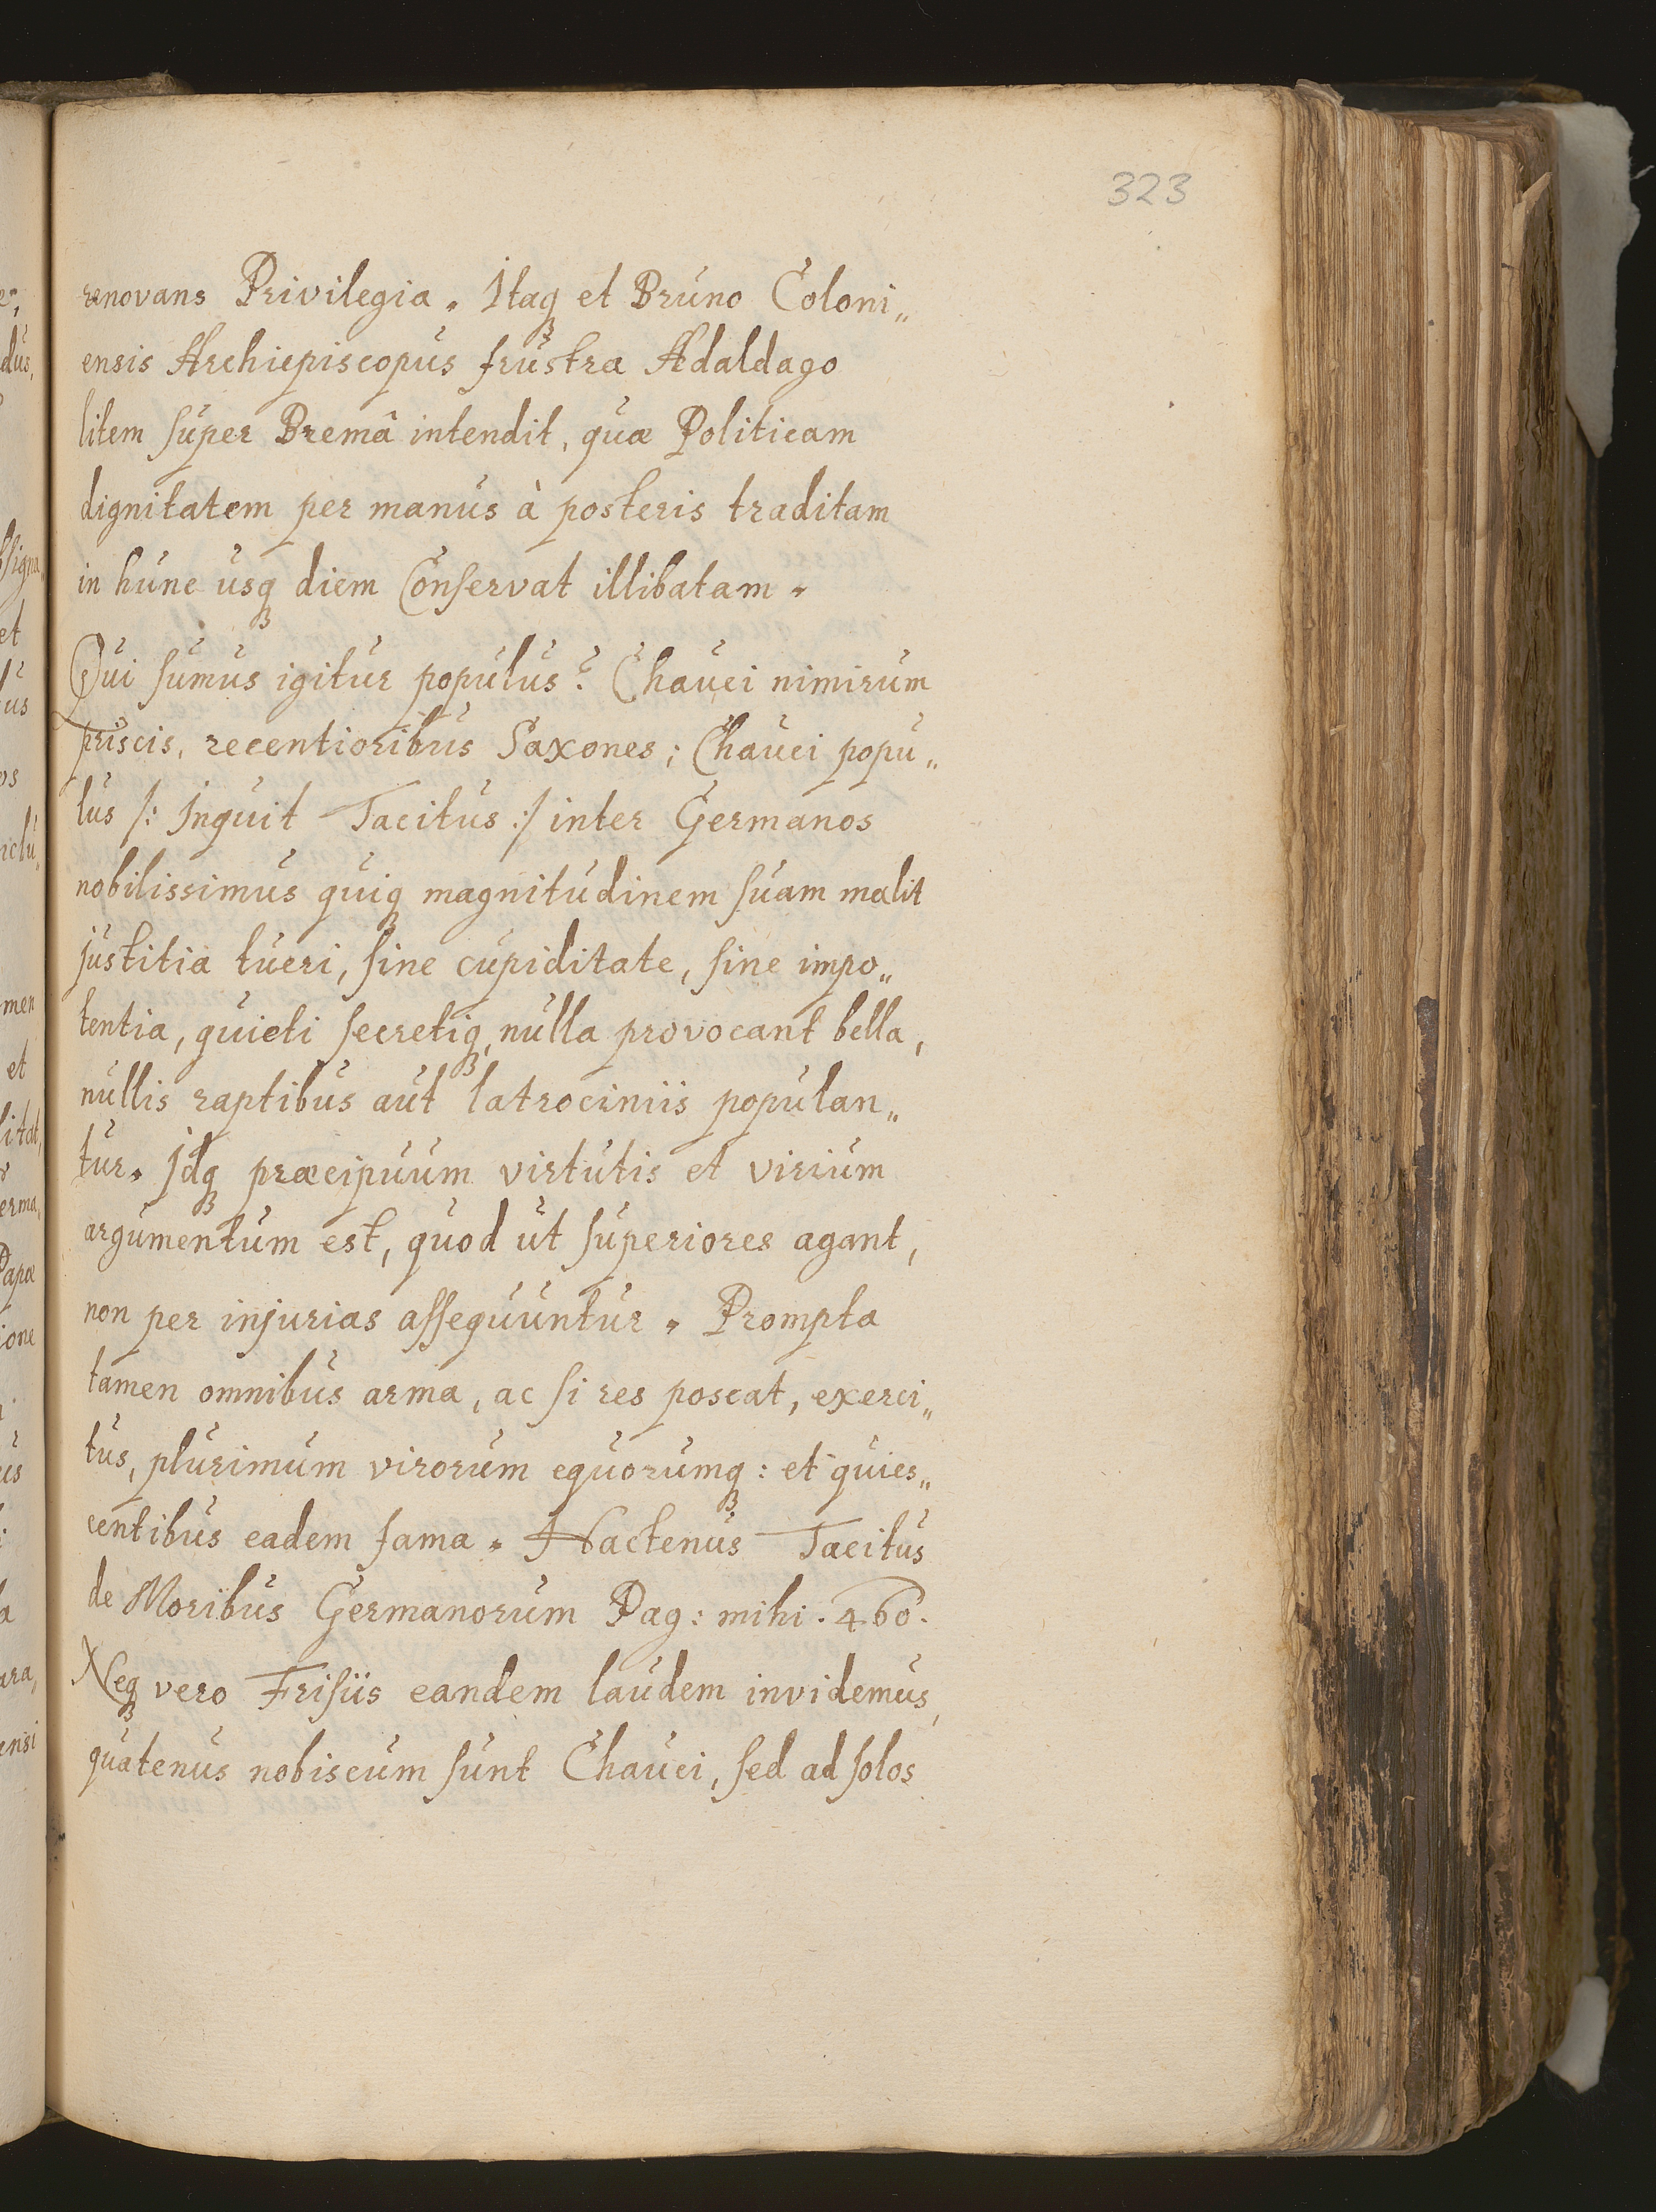 323
renovans Privilegia. Itaq₃ et Bruno Coloni„
ensis Archiepiscopus frustra Adaldago
litem super Bremâ intendit, quæ Politicam
dignitatem per manus à posteris traditam
in hunc usq₃ diem Conservat illibatam.
Qui sumus igitur populus? Chauci nimirum
priscis, recentioribus Saxones; Chauci popu„
lus /: Inquit Tacitus :/ inter Germanos
nobilissimus quiq₃ magnitudinem suam malit
justitia tueri, sine cupiditate, sine impo„
tentia, quieti secretiq₃, nulla provocant bella,
nullis raptibus aut latrociniis populan„
tur. Idq₃ præcipuum virtutis et virium
argumentum est, quod ut superiores agant,
non per injurias assequuntur. Prompta
tamen omnibus arma, ac si res poscat, exerci„
tus, plurimum virorum equorumq₃: et quies„
centibus eadem fama. Hactenus Tacitus
de Moribus Germanorum Pag: mihi. 460.
Neq₃ vero Frisiis eandem laudem invidemus,
quatenus nobiscum sunt Chauci, sed ad solos